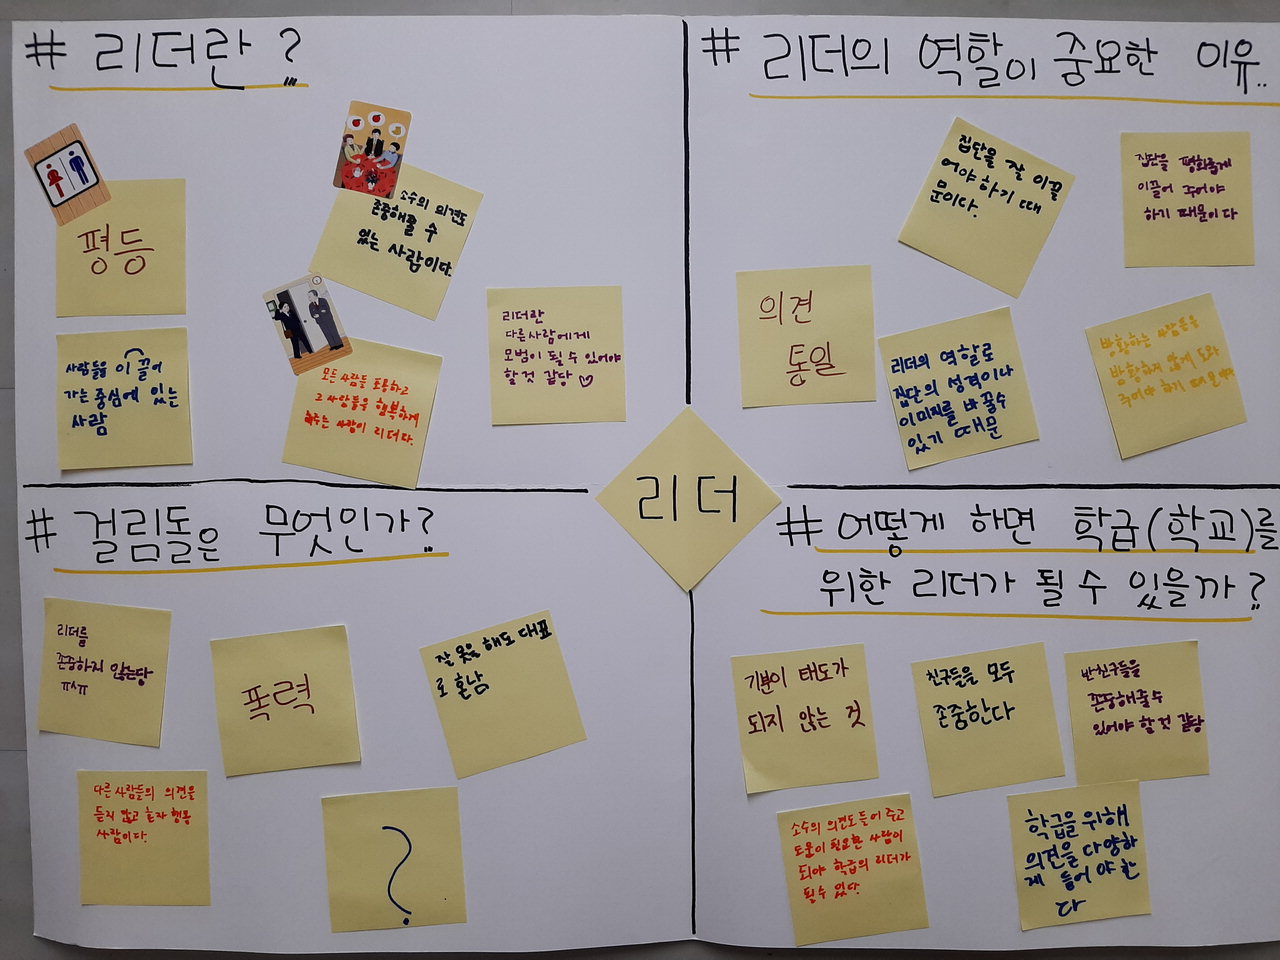 # 리더란?
평등
소수의 의견도
존중해줄 수
있는 사람이다.
사람들을 이끌어
가는 중심에 있는
사람
모든 사람들 포용하고
그 사람들을 행복하게
해주는 사람이 리더다.
리더란
다른사람에게
모범이 될 수 있어야
할 것 같당 ♡
# 리더의 역할이 중요한 이유..
집단을 잘 이끌
어야 하기 때
문이다.
집단을 평화롭게
이끌어 주어야
하기 때문이다
의견
통일
리더의 역할로
집단의 성격이나
이미지를 바꿀수
있기 때문
방황하는 사람들을
방황하지 않게 도와
주어야 하기 때문에
리더
# 걸림돌은 무엇인가?
리더를
존중하지 않는당
ㅠㅅㅠ
폭력
잘못을 해도 대표
로 혼남
다른 사람들의 의견을
듣지 않고 혼자 행동
사람이다.
?
# 어떻게 하면 학급(학교)를
위한 리더가 될 수 있을까?
기분이 태도가
되지 않는 것
친구들을 모두
존중한다
반친구들을
존중해줄수
있어야 할것 같당
소수의 의견도 들어 주고
도움이 필요한 사람이
되야 학급의 리더가
될수 있다.
학급을 위해
의견을 다양하
게 들어야 한
다